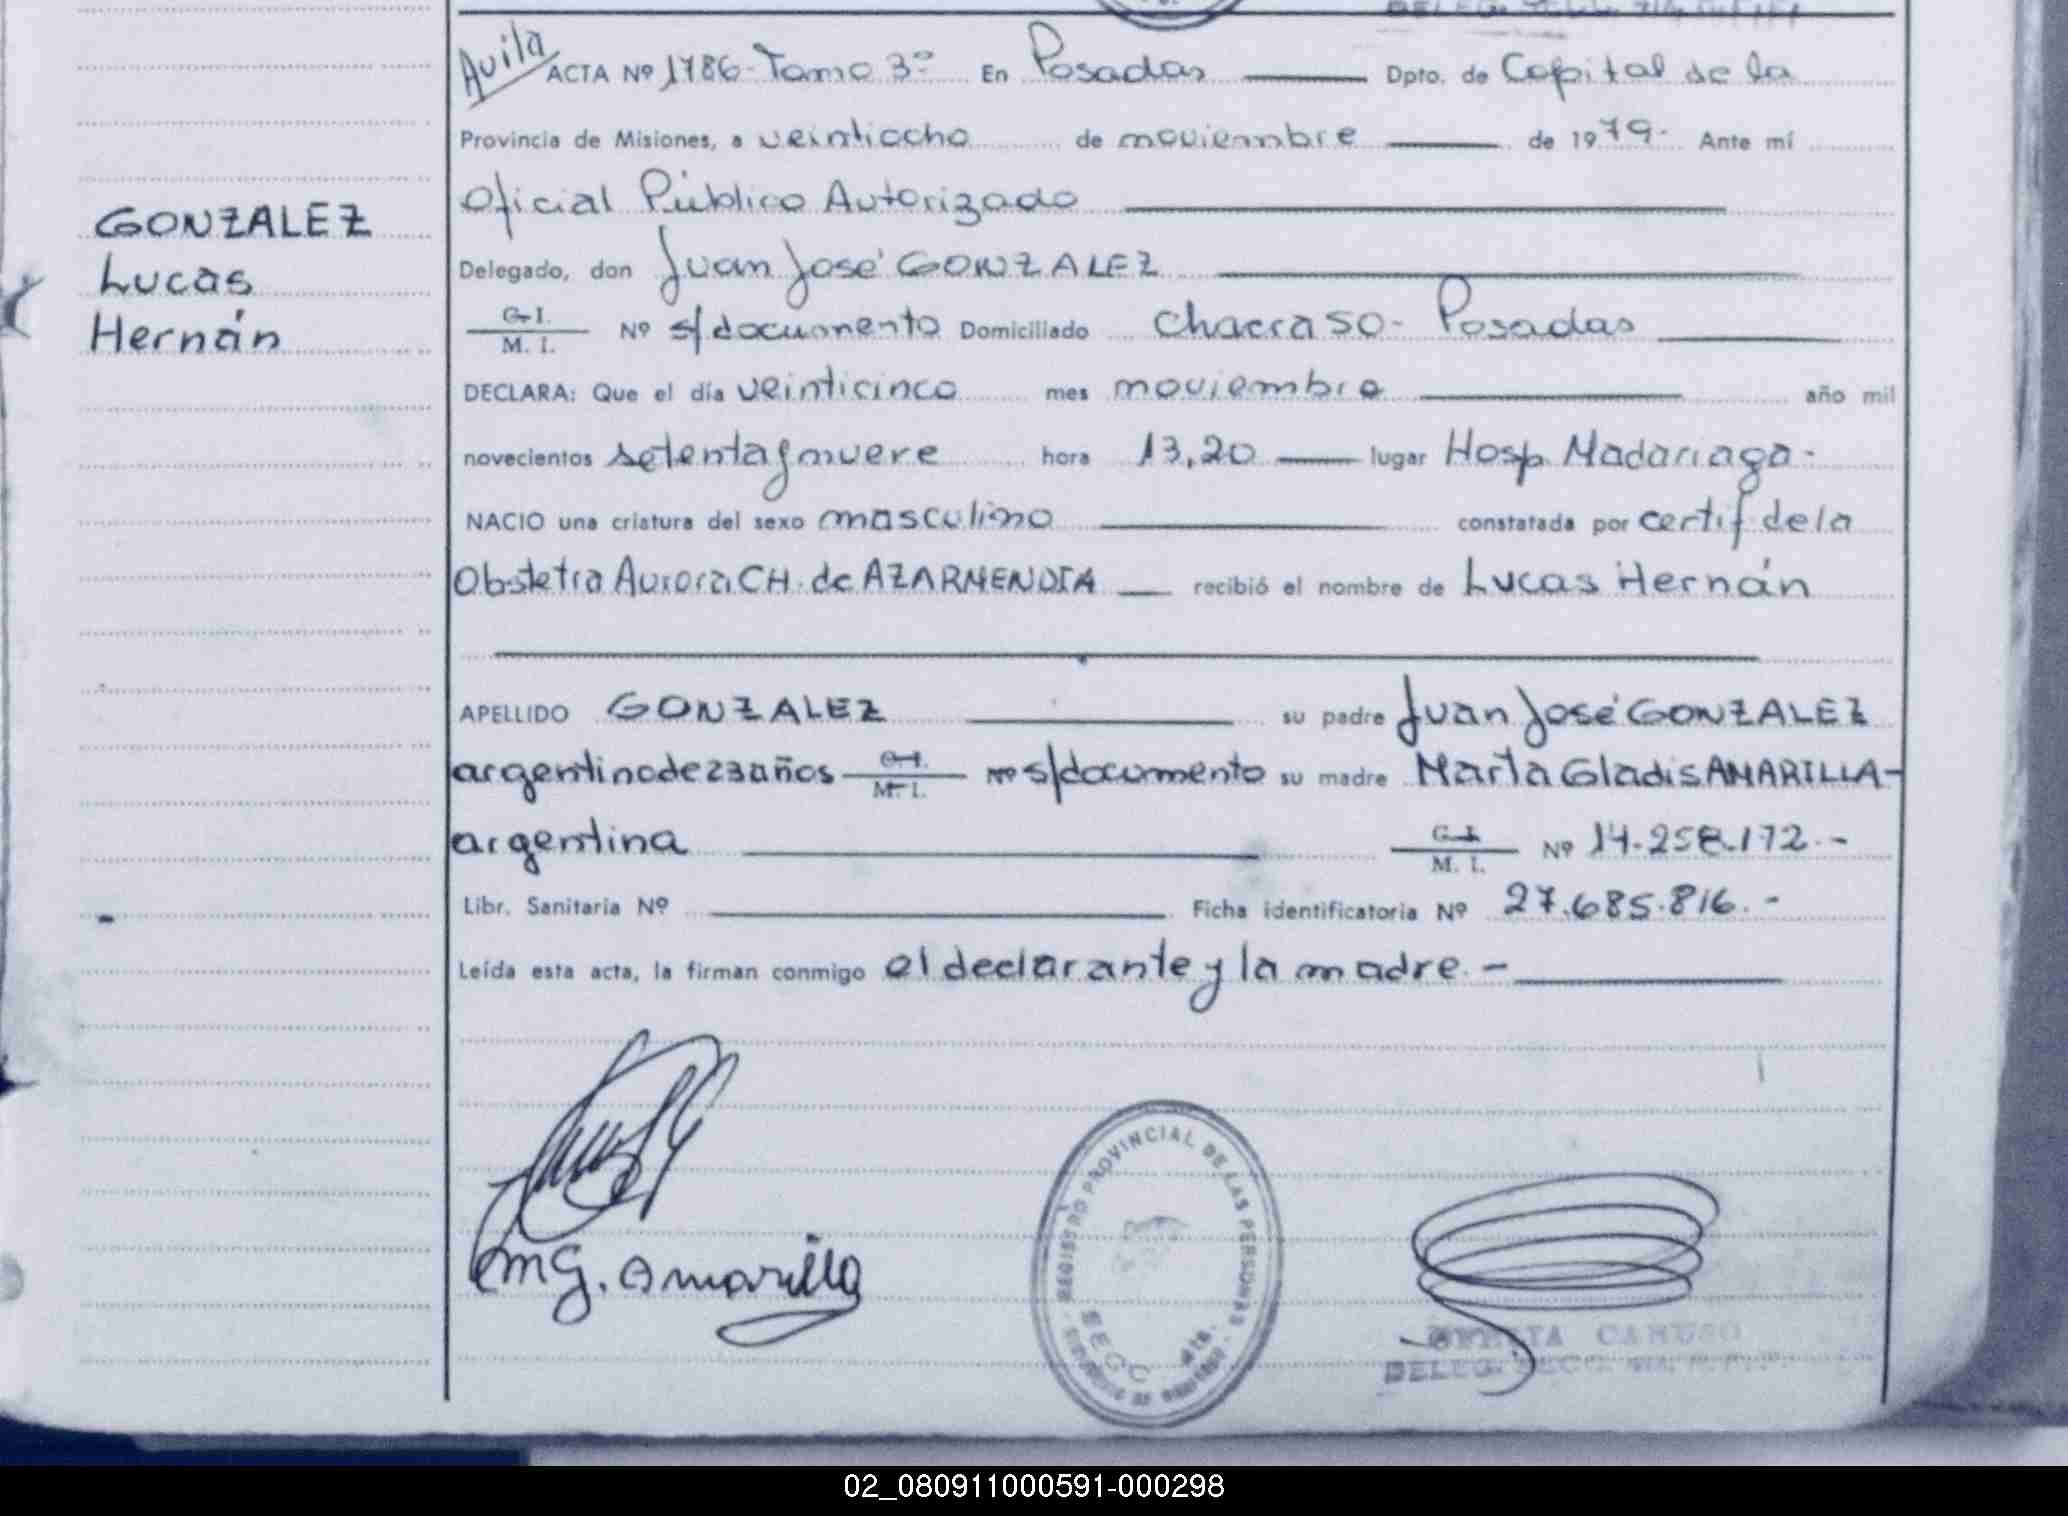 Avila
ACTA Nº 1786- Tomo 3º En Posadas Dpto. de Capital de la
Provincia de Misiones, a veintiocho de noviembre de 1979- Ante mí
Oficial Público Autorizado
Delegado, don Juan José GONZALEZ
C. I.
M. I.
Nº s/documento Domiciliado Chacra 50- Posadas
DECLARA: Que el día veinticinco mes noviembre año mil
novecientos setenta y nueve hora 13,20 lugar Hosp. Madariaga-
NACIO una criatura del sexo masculino constatada por certif de la
Obstetra Aurora CH. de AZARMENDIA recibió el nombre de Lucas Hernán
APELLIDO GONZALEZ su padre Juan José GONZALEZ
argentino de 23 años C. I. M. I. Nº s/documento su madre Marta Gladis AMARILLA-
argentina C. I. M. I. Nº 14.258.172.-
Libr. Sanitaria Nº Ficha identificatoria Nº 27.685.816.-
Leída esta acta, la firman conmigo el declarante y la madre.-
GONZALEZ
Lucas
Hernán
MG. Amarilla
REGISTRO PROVINCIAL DE LAS PERSONAS
SECC
CARUSO
DELEG. SECC.
02_080911000591-000298